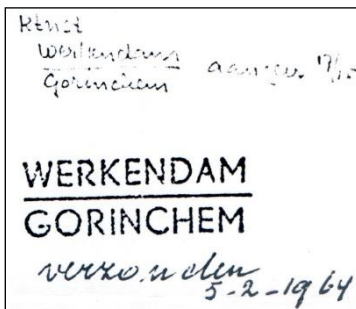 Ktnst
Werkendam
Gorinchem aangev. 17/10
WERKENDAM
GORINCHEM
verzonden
5-2-1964